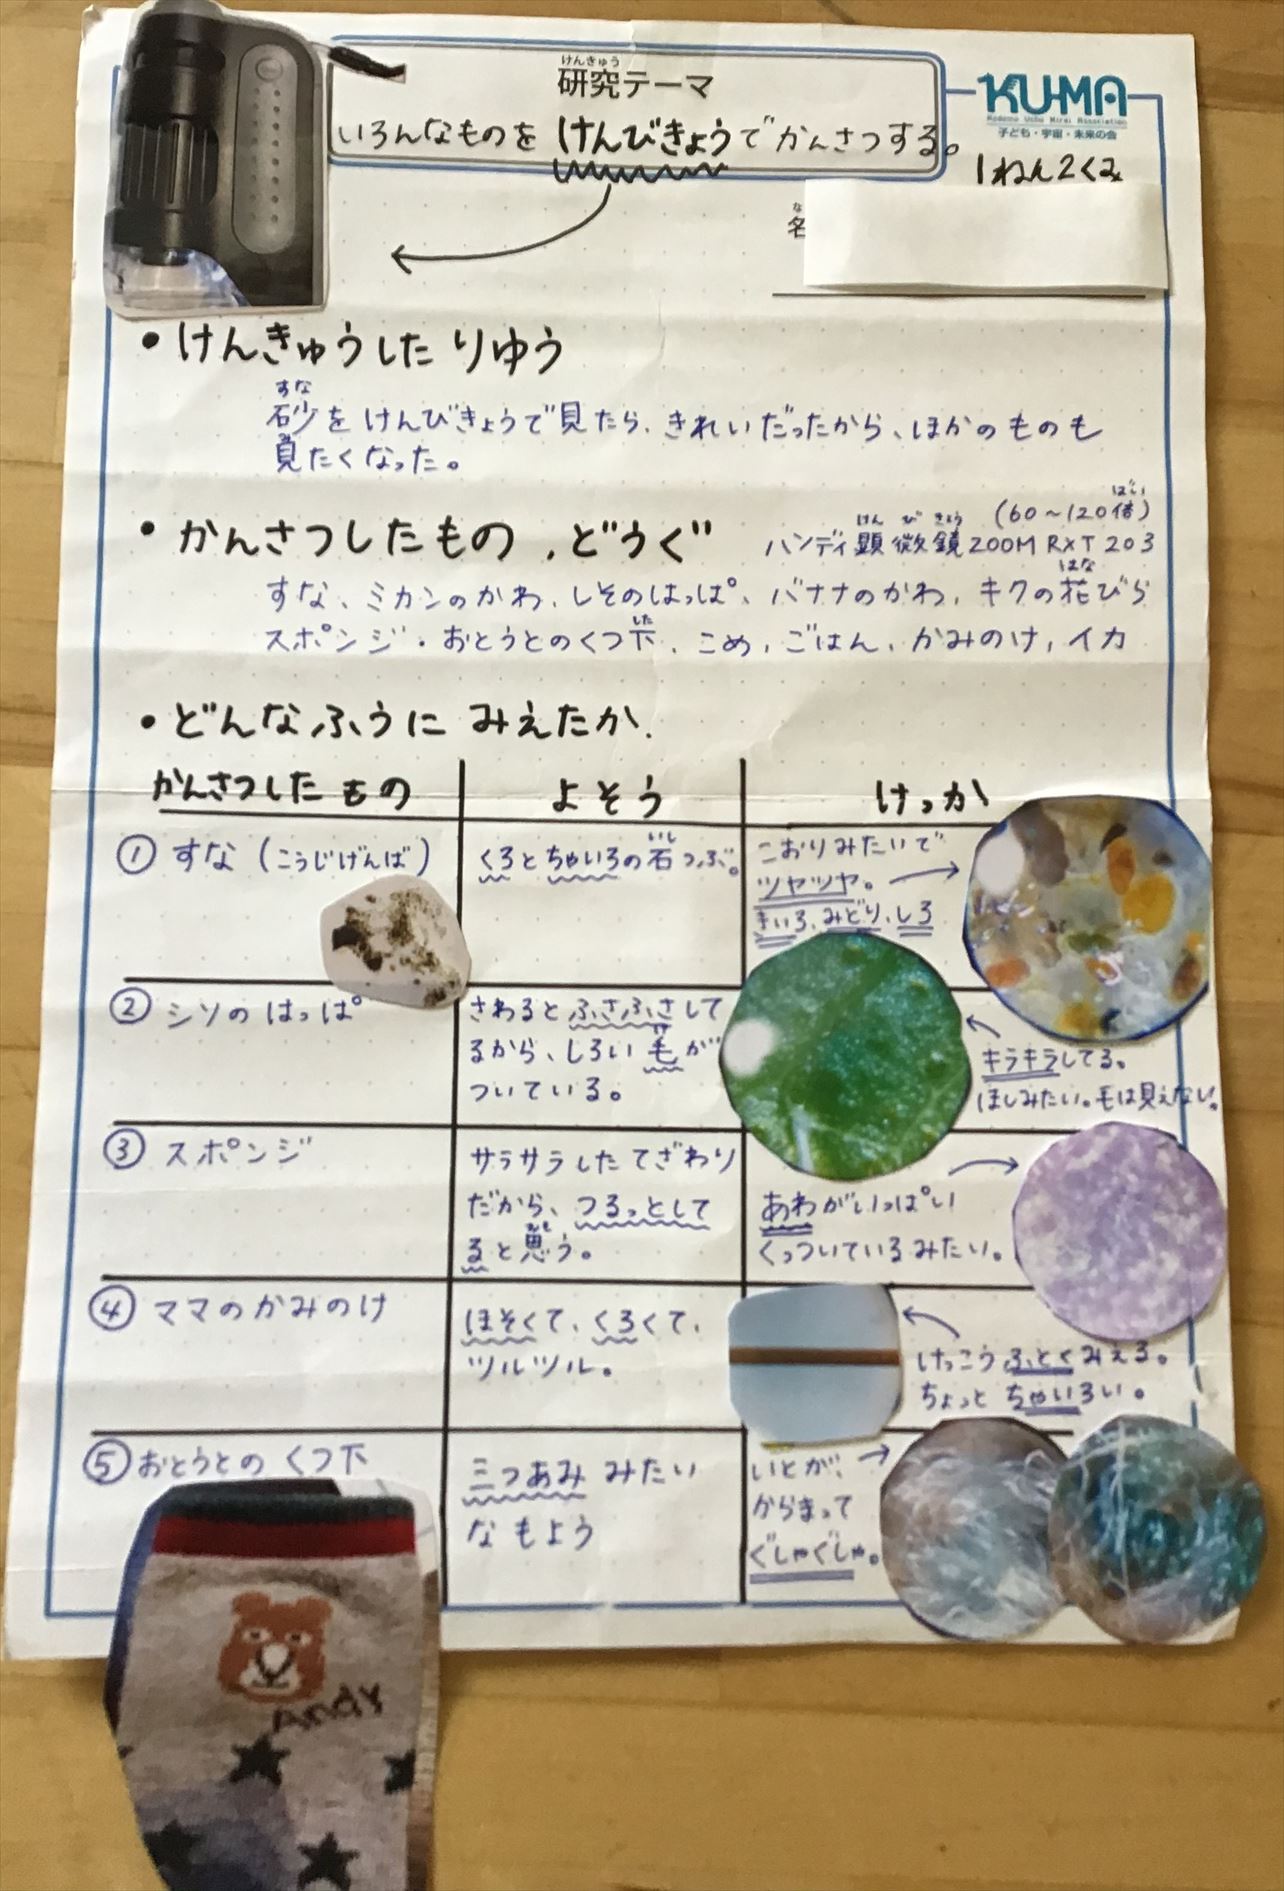 けんきゅう
研究テーマ
いろんなものを けんびきょうでかんさつする。
KU-MA
Kodomo Uchu Mirai Association
子ども・宇宙・未来の会
1ねん2くみ
な
名
・けんきゅうした りゆう
すな
砂をけんびきょうで見たら、きれいだったから、ほかのものも
見たくなった。
・かんさつしたもの、どうぐ
ばい
(60～120倍)
けん び きょう
ハンディ顕微鏡ZOOM RXT203
はな
すな、ミカンのかわ、しそのはっぱ、バナナのかわ、キクの花びら
した
スポンジ・おとうとのくつ下、こめ、ごはん、かみのけ、イカ
・どんなふうに みえたか.
かんさつした もの
よそう
けっか
①すな(こうじげんば)
いし
くろとちゃいろの石つぶ。
こおりみたいで
ツヤツヤ。
きいろ、みどり、しろ
②シソのはっぱ
さわるとふさふさして
け
るから、しろい毛が
ついている。
キラキラしてる。
ほしみたい。毛は見えない。
③スポンジ
サラサラしたてざわり
だから、つるっとして
おも
ると思う。
あわがいっぱい
くっついているみたい。
④ママのかみのけ
ほそくて、くろくて、
ツルツル。
けっこうふとくみえる。
ちょっとちゃいろい。
⑤おとうとの くつ下
三つあみ みたい
な もよう
いとが、
からまって
ぐしゃぐしゃ。
Andy